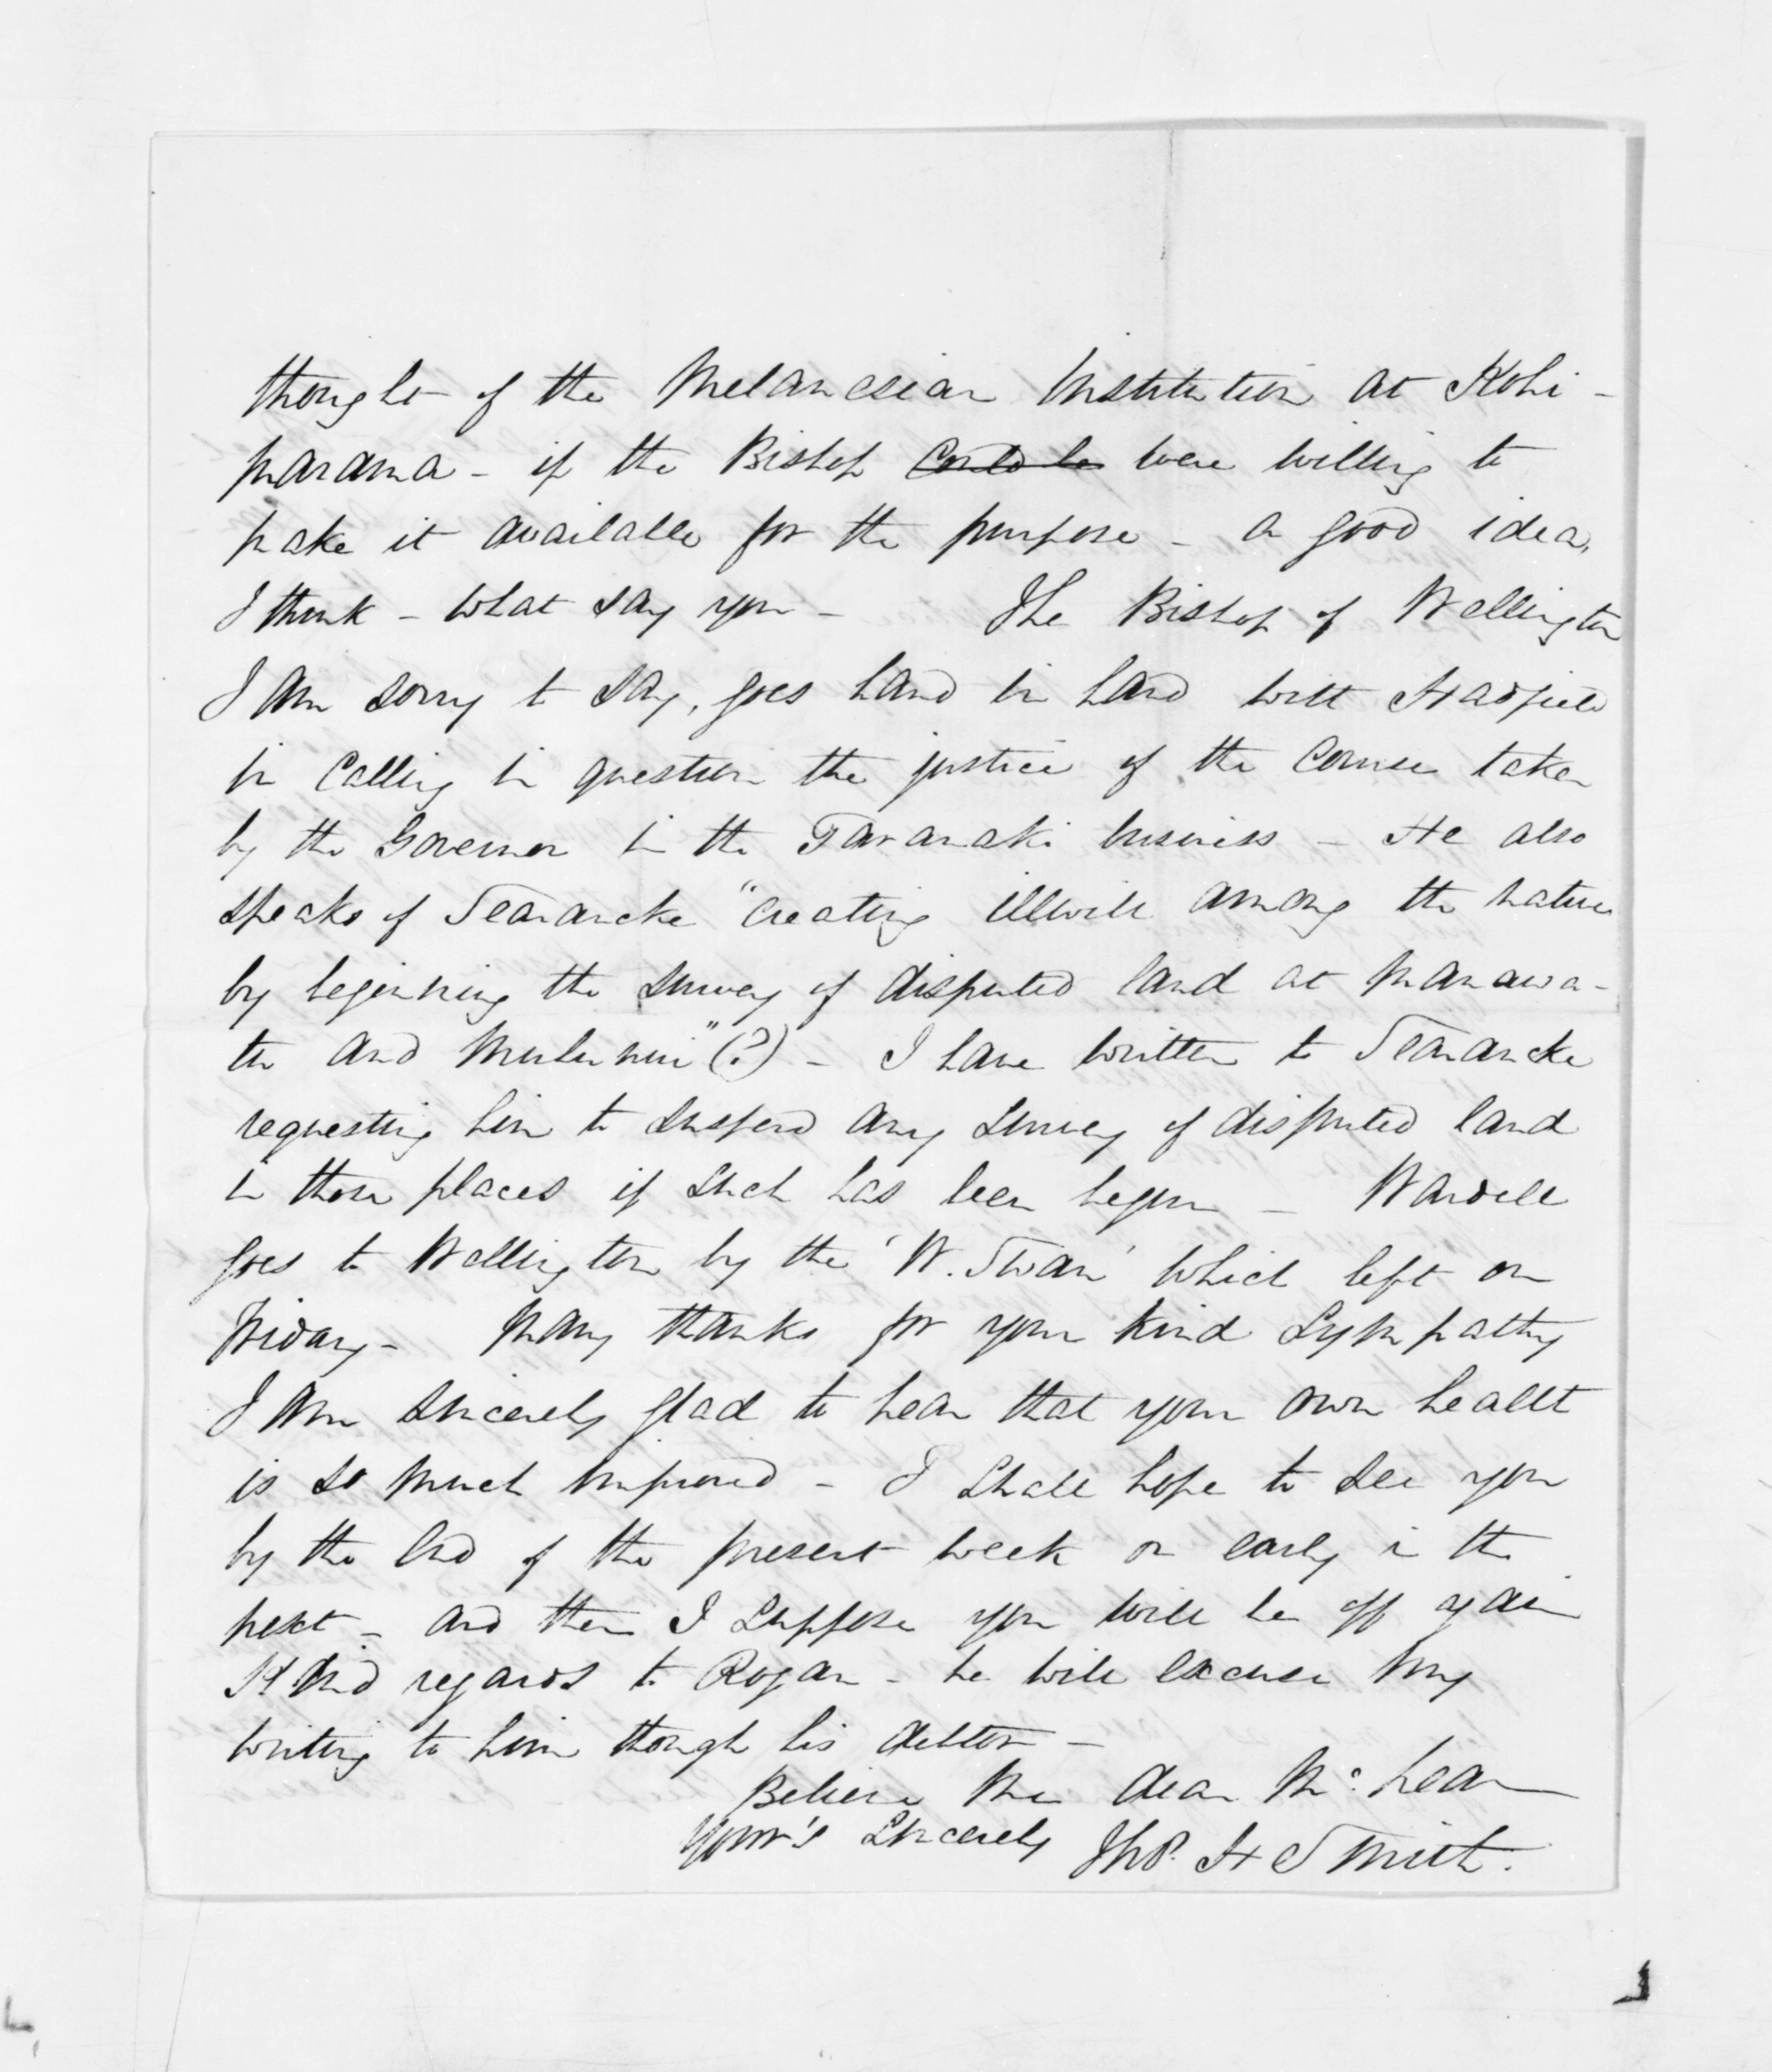 thought of the Melanesian Institution at Kohi-
marama - if the Bishop could be were willing to
make it available for the purpose - a good idea,
I think - what say you - The Bishop of Wellington
I am sorry to say, goes hand in hand with Hadfield
in calling in question the justice of the course taken
by the Governor in the Taranaki business - He also
speaks of Searancke "creating illwill among the natives
by beginning the survey of disputed land at Manawa-
tu and Muhunui" (?) - I have written to Searancke
requesting him to suspend any survey of disputed land
in those places if such has been begun - Wardell
goes to Wellington by the 'W. Swan' which left on
Friday - Many thanks for your kind sympathy
I am sincerely glad to hear that your own health
is so much improved - I shall hope to see you
by the end of the present week or early in the
next - and then I suppose you will be off again
Kind regards to Rogan - he will excuse my
writing to him though his debtor -
Believe me dear McLean
Your's Sincerely Thos. H Smith.